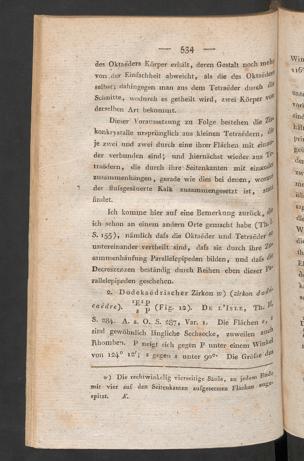 — 534 —
des Oktaëders Körper erhält, deren Gestalt noch mehr
von der Einfachheit abweicht, als die des Oktaëders
selbst; dahingegen man aus dem Tetraëder durch die
Schnitte, wodurch es getheilt wird, zwei Körper von
derselben Art bekommt.
Dieser Voraussetzung zu Folge bestehen die Zir-
konkrystalle ursprünglich aus kleinen Tetraëdern, die
je zwei und zwei durch eine ihrer Flächen mit einan-
der verbunden sind; und hiernächst wieder aus Te-
traëdern, die durch ihre Seitenkanten mit einander
zusammenhängen, gerade wie dies bei denen, woraus
der flußgesäuerte Kalk zusammengesetzt ist, statt
findet.
Ich komme hier auf eine Bemerkung zurück, die
ich schon an einem andern Orte gemacht habe (Th. I.
S. 155), nämlich daß die Oktaëder und Tetraëder so
untereinander vertheilt sind, daß sie durch ihre Zu-
sammenhäufung Parallelepipeden bilden, und daß die
Decreszenzen beständig durch Reihen eben dieser Pa-
rallelepipeden geschehen.
2. Dodekaëdrischer Zirkon w) (zirkon dodé-
caèdre). ¹E¹P (Fig. 12). DE L'ISLE, Th. II,
s P
S. 284. A. a. O. S. 287, Var. 1. Die Flächen s, s
sind gewöhnlich längliche Sechsecke, zuweilen auch
Rhomben. P neigt sich gegen P unter einem Winkel
von 124° 12′; s gegen s unter 90°. Die Größe des
w) Die rechtwinkelig vierseitige Säule, an jedem Ende
mit vier auf den Seitenkanten aufgesetzten Flächen zuge-
spitzt. K.